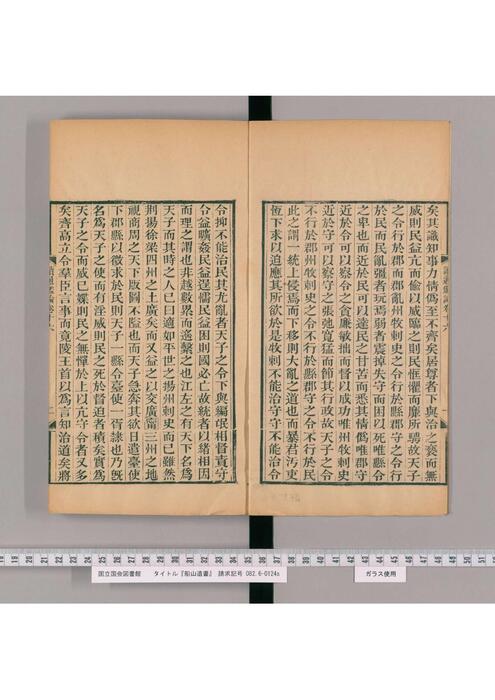 矣其識知事力情僞至不齊矣居尊者下與治之褻而無
威則民益亢而偷以威臨之則民恇懼而靡所騁故天子
之令行於郡而郡亂州牧刺史之令行於縣郡守之令行
於民而民亂彊者玩焉弱者震掉失守而困以死唯縣令
之卑也而近於民可以達民之甘苦而悉其情僞唯郡守
近於令可以察令之貪廉敏拙而督以成功唯州牧刺史
近於守可以察守之張弛寬猛而節其行政故天子之令
不行於郡州牧刺史之令不行於縣郡守之令不行於民
此之謂一統上侵焉而下移則大亂之道也而暴君汚吏
恆下求以迫應其所欲於是牧刺不能治守守不能治令
令抑不能治民其尤亂者天子之令下與編氓相督責守
令益曠姦民益逞懦民益困則國必亡故統者以緒相因
而理之謂也非越數累而遙繫之也江左之有天下名爲
天子而其時之人已曰適如平世之揚州刺史而已雖然
荆揚徐梁四州之土廣矣而又益之以交廣甯三州之地
視商周之天下版圖不隘也而天子急奔其欲日遣臺使
下郡縣以徵求於民則天子一縣令臺使一胥隸也乃旣
名爲天子之使而有淫威則民之死於督迫者積矣實爲
天子之令而威已媟則民之無憚於上以亢守令者又多
矣齊高立令羣臣言事而竟陵王首以爲言知治道矣將
國立国会図書館 タイトル『船山遺書』 請求記号 082.6-0124s
ガラス使用